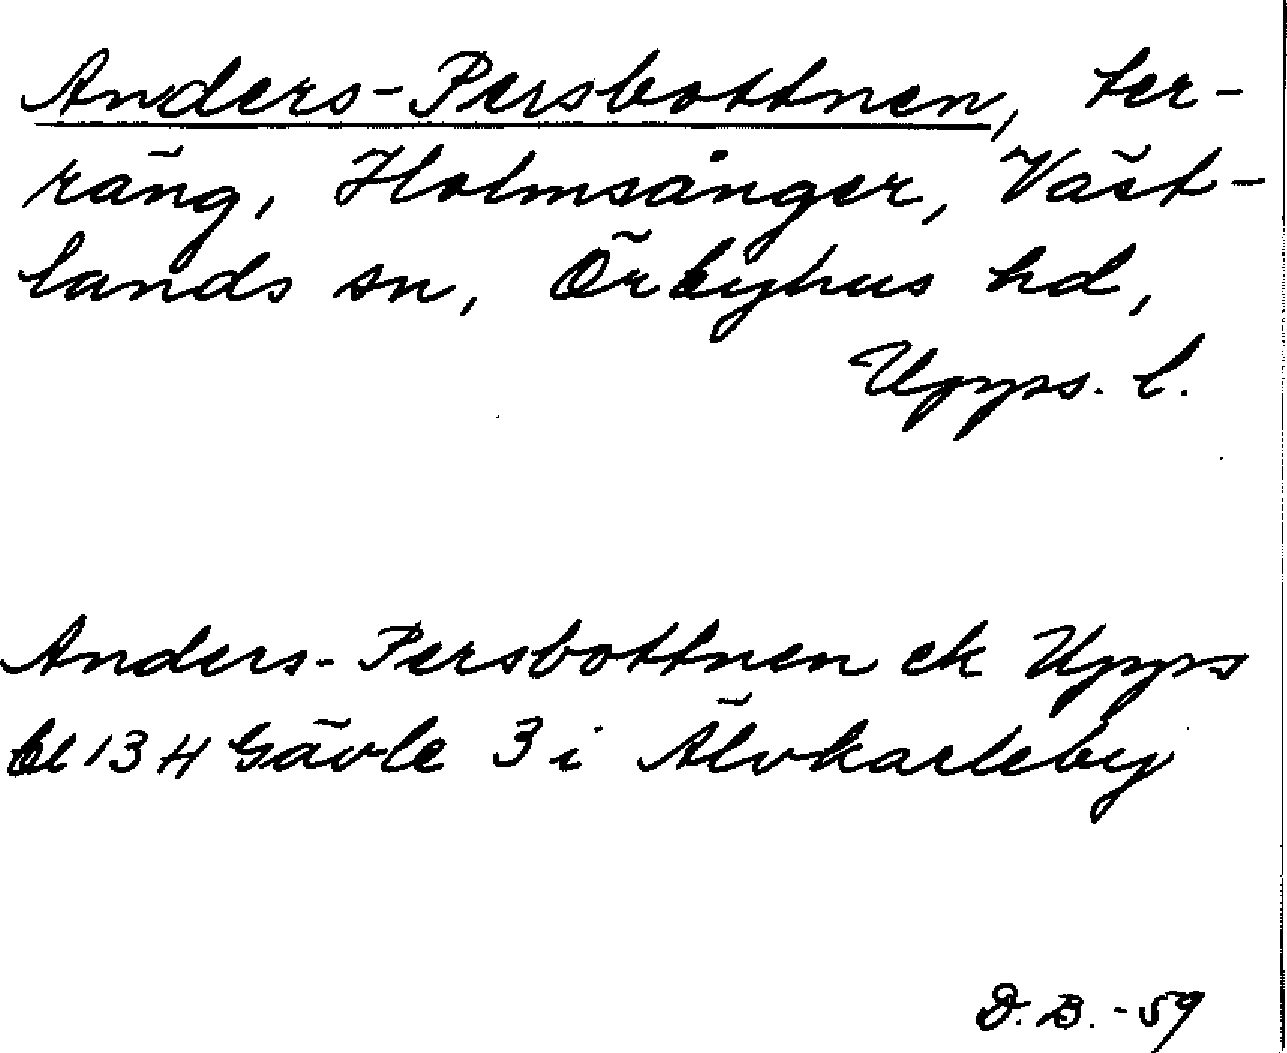 Anders-Persbottnen, ter-
räng, Holmsånger, Väst-
lands sn, Örbyhus hd,
Upps. l.
Anders-Persbottnen ek Upps
bl 13 H Gävle 3 i Älvkarleby
D. B. -59